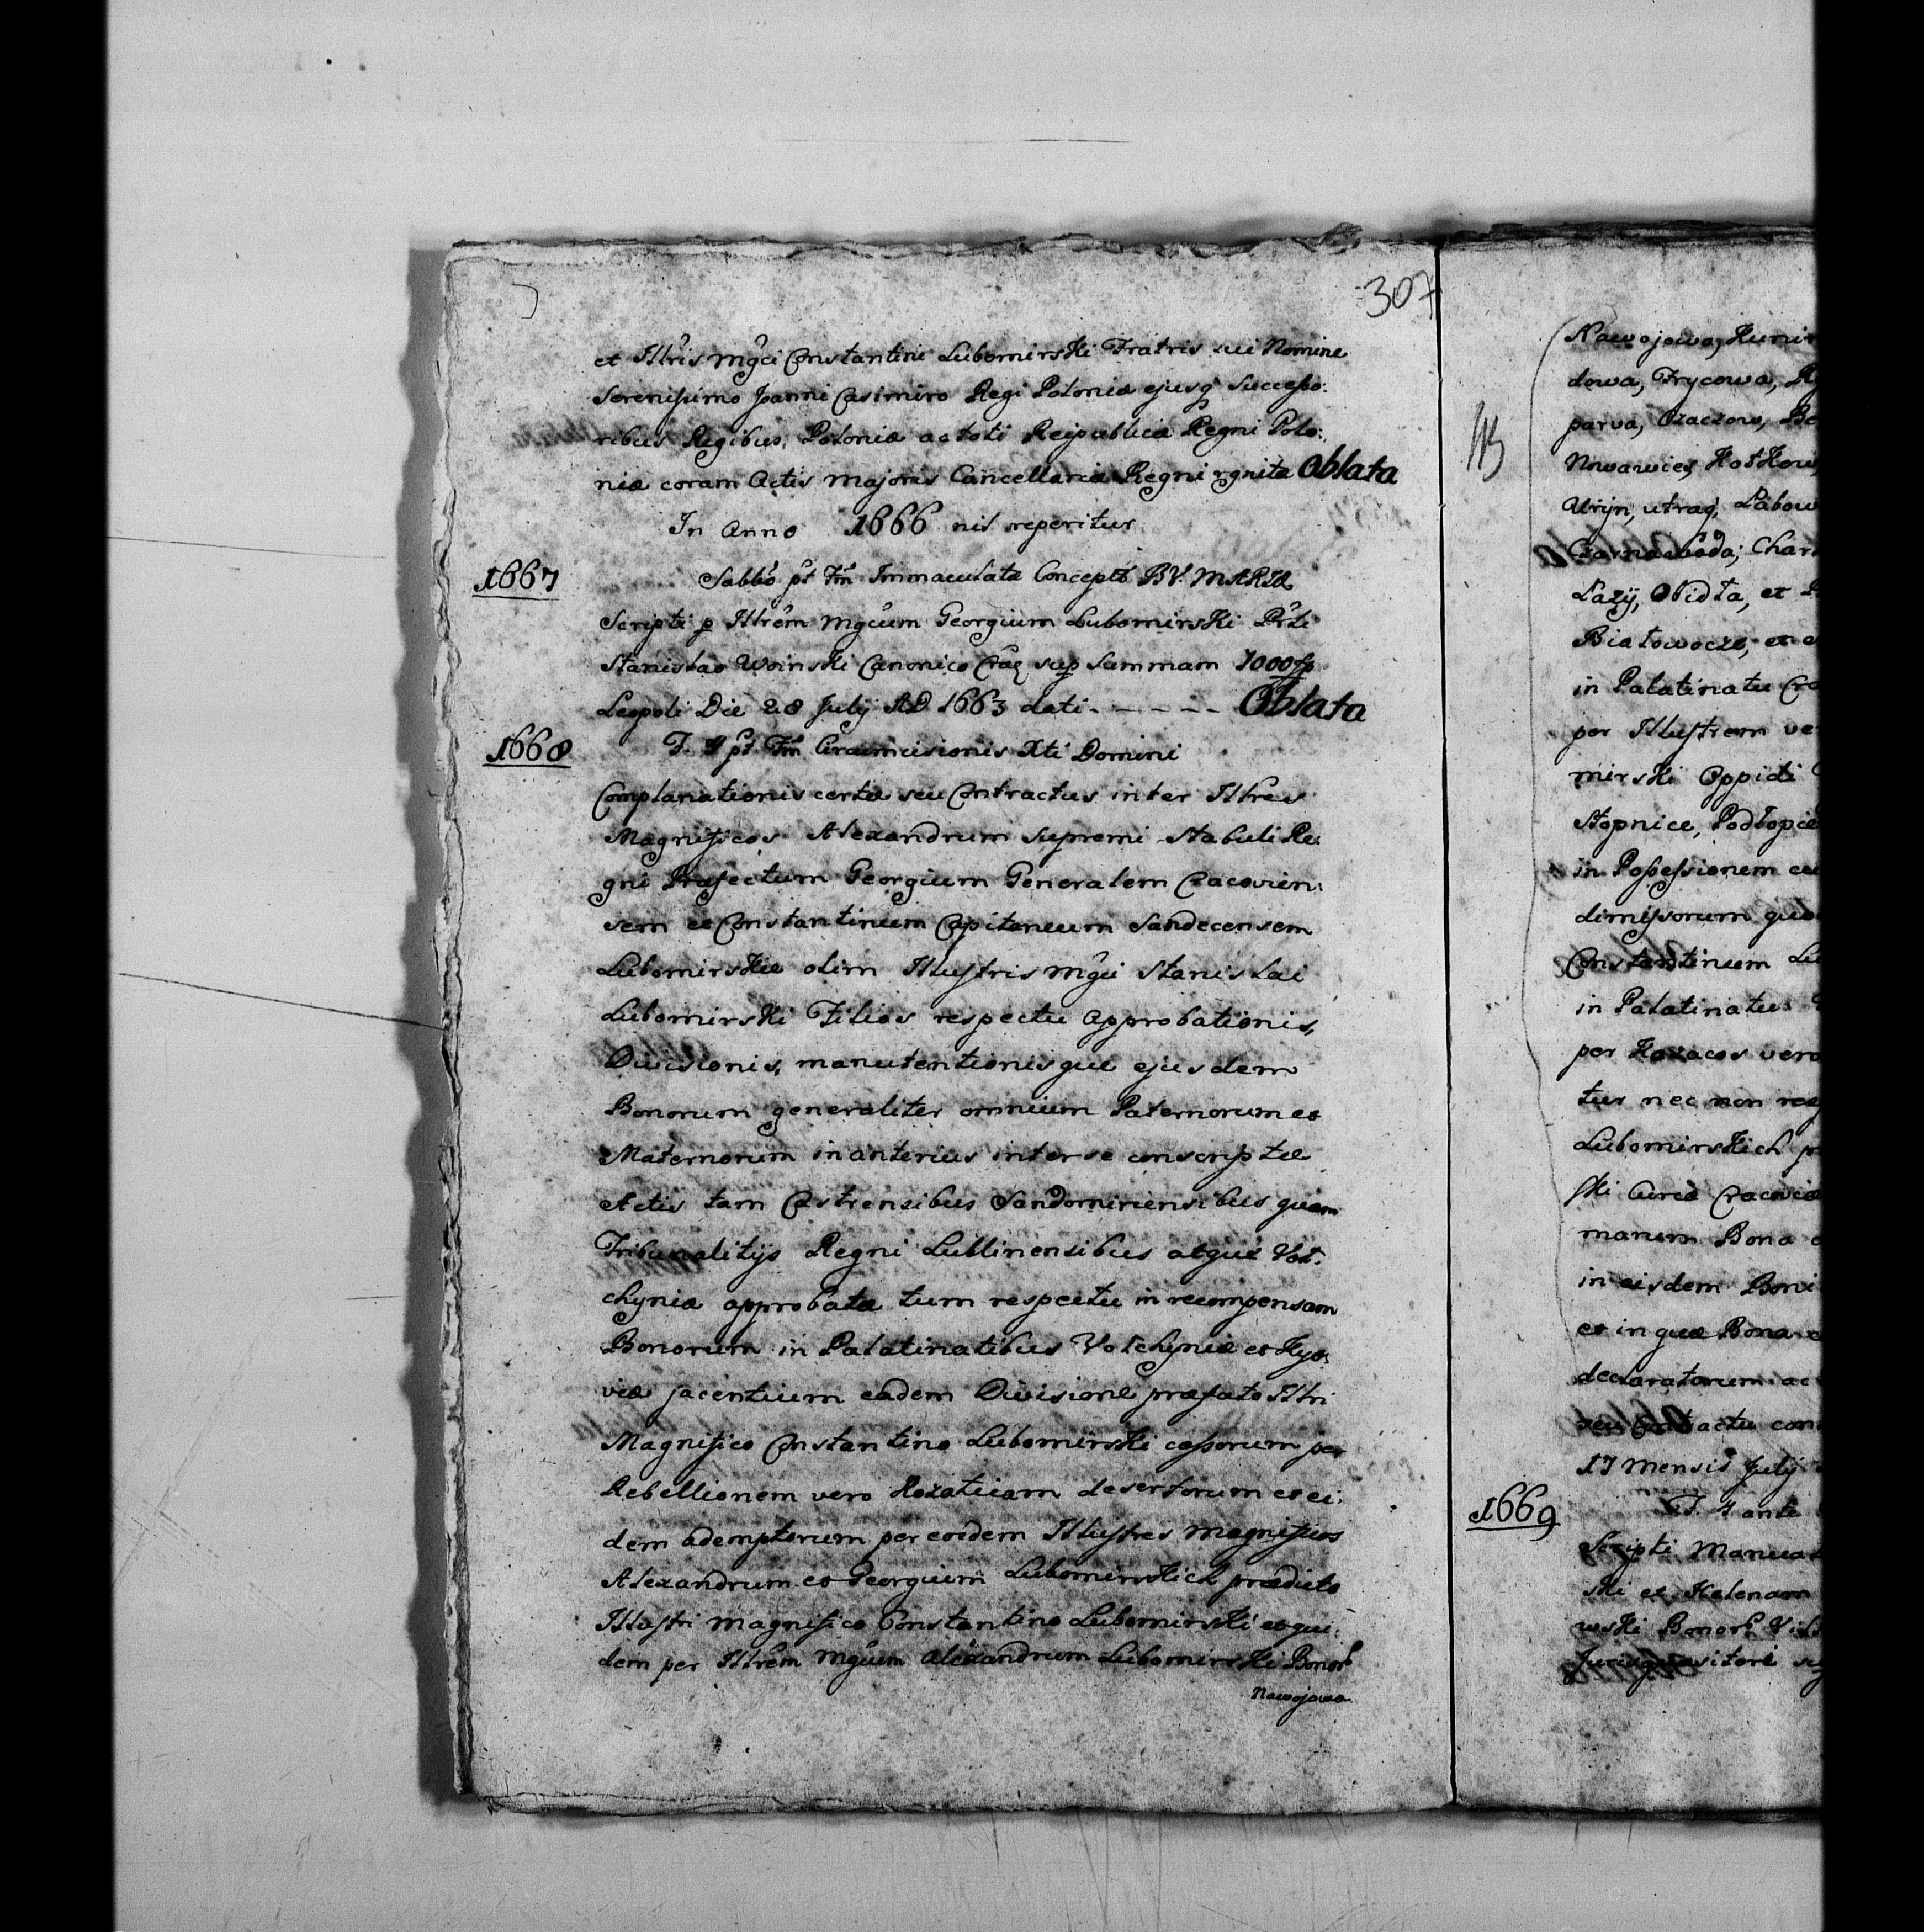 307
et Illris Mgci Constantini Lubomirski Fratris sui Nomine
Serenissimo Joanni Casimiro Regi Poloniæ ejusq Successo:
ribus Regibus Poloniæ ac toti Reipublicæ Regni Polo:
niæ coram Actis Majoris Cancellariæ Regni Oblata
In Anno 1666 nil reperitur
1667
Sabbo pt Fm Immaculatæ Concepts B.V. MARIÆ
Scripti p Illrem Mgcum Georgium Lubomirski
Stanislao Woinski Canonico sup Summam 1000 fp
Leopoli Die 28 July AD 1663 dati - - - - - Oblata
1668
F. 4 pt Fm Circumcisionis Xti Domini
Complanationis certæ seu Contractus inter Illres
Magnificos Alexandrum Supremi Stabuli Re:
gni Præfectum Georgium Generalem Cracovien:
sem et Constantinum Capitaneum Sandecensem
Lubomirskie olim Illustris Mgci Stanislai
Lubomirski Filios respectu Approbationis,
Divisionis, manutentionisque ejusdem
Bonorum generaliter omnium Paternorum et
Maternorum in anterius inter se conscriptæ
Actis tam Castrensibus Sandomiriensibus quam
Tribunalitijs Regni Lublinensibus atque Vol:
chyniæ approbatæ tum respectu in recompensam
Bonorum in Palatinatibus Volchyniæ et Kyo:
viæ jacentium eadem Divisione præfato Illri
Magnifico Constantino Lubomirski cessorum per
Rebellionem vero Kozaticam desertorum et ei:
dem ademptorum per eosdem Illustres Magnificos
Alexandrum et Georgium Lubomirskich prædicto
Illustri Magnifico Constantino Lubomirski et qui:
dem per Illrem Mgcum Alexandrum Lubomirski Bonor
Nawojowa
Nawojowa,
dowa, Frycowa,
parva, Czaczow,
Nowawies,
Uryn, utraq, Labow
Czarnawoda,
Lazy, Obidza, et
Bialowocze, et
in Palatinatu
per Illustrem
mirski Oppidi
Stopnice,
in Possessionem
dimissorum
Constantinum
in Palatinatu
per Kozacos
tur nec non
Lubomirskich
ski
manum Bona
in eisdem
et in quæ Bona
declaratorum ac
seu Contractu
17 Mensis July
1669
F. 4 ante
Scripti
ski et Helenam
wski